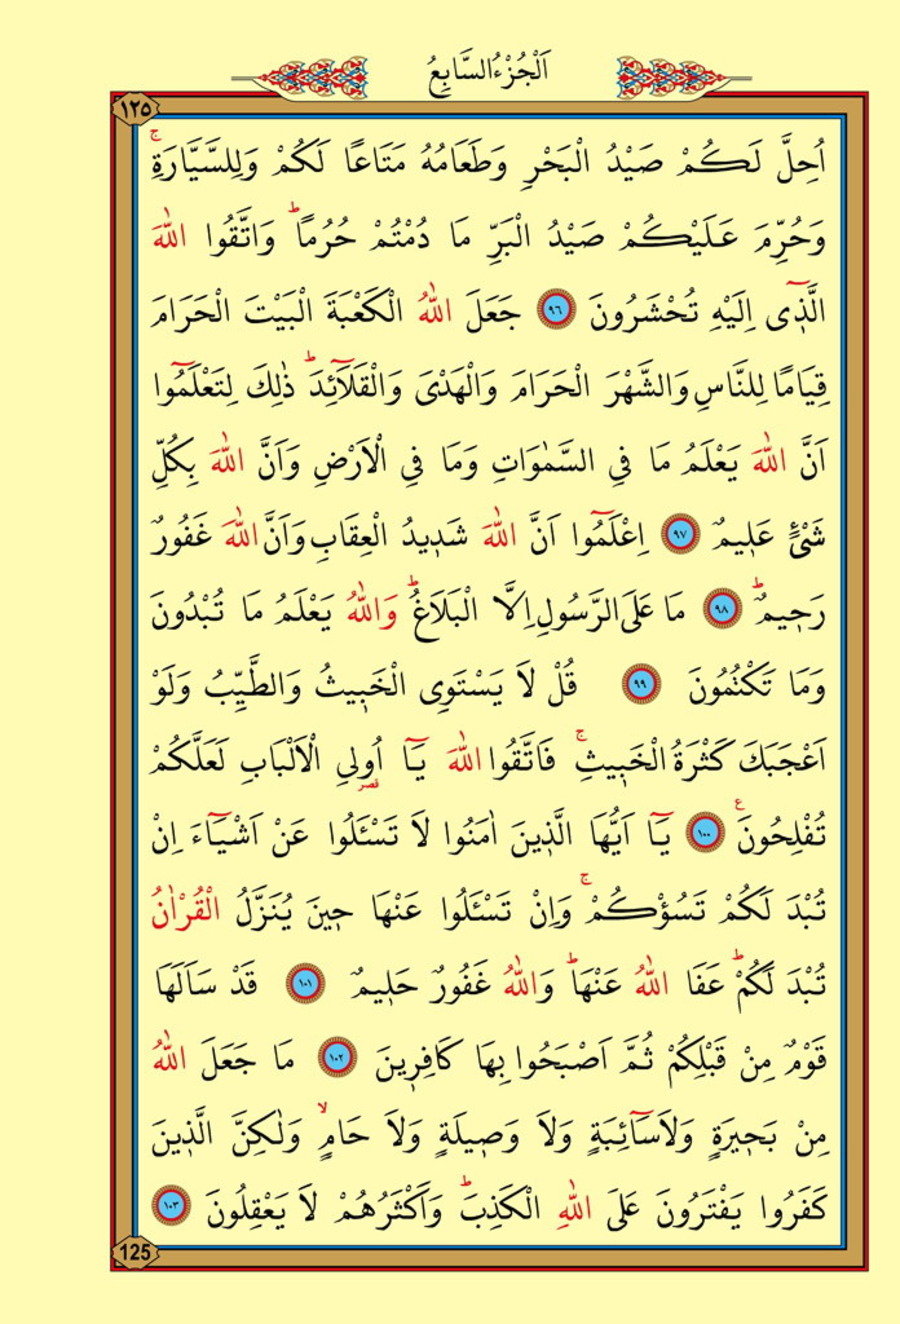 اَلْجُزْءُ السَّابِعُ
١٢٥
اُحِلَّ لَكُمْ صَيْدُ الْبَحْرِ وَطَعَامُهُ مَتَاعًا لَكُمْ وَلِلسَّيَّارَةِۚ
وَحُرِّمَ عَلَيْكُمْ صَيْدُ الْبَرِّ مَا دُمْتُمْ حُرُمًاۜ وَاتَّقُوا اللّٰهَ
الَّذ۪ٓى اِلَيْهِ تُحْشَرُونَ ﴿٩٦﴾ جَعَلَ اللّٰهُ الْكَعْبَةَ الْبَيْتَ الْحَرَامَ
قِيَامًا لِلنَّاسِ وَالشَّهْرَ الْحَرَامَ وَالْهَدْىَ وَالْقَلَٓائِدَۜ ذٰلِكَ لِتَعْلَمُٓوا
اَنَّ اللّٰهَ يَعْلَمُ مَا فِي السَّمٰوَاتِ وَمَا فِي الْاَرْضِ وَاَنَّ اللّٰهَ بِكُلِّ
شَيْءٍ عَل۪يمٌ ﴿٩٧﴾ اِعْلَمُٓوا اَنَّ اللّٰهَ شَد۪يدُ الْعِقَابِ وَاَنَّ اللّٰهَ غَفُورٌ
رَح۪يمٌۜ ﴿٩٨﴾ مَا عَلَى الرَّسُولِ اِلَّا الْبَلَاغُۜ وَاللّٰهُ يَعْلَمُ مَا تُبْدُونَ
وَمَا تَكْتُمُونَ ﴿٩٩﴾ قُلْ لَا يَسْتَوِى الْخَب۪يثُ وَالطَّيِّبُ وَلَوْ
اَعْجَبَكَ كَثْرَةُ الْخَب۪يثِۚ فَاتَّقُوا اللّٰهَ يَٓا اُولِي الْاَلْبَابِ لَعَلَّكُمْ
تُفْلِحُونَ۟ ﴿١٠٠﴾ يَٓا اَيُّهَا الَّذ۪ينَ اٰمَنُوا لَا تَسْـَٔلُوا عَنْ اَشْيَٓاءَ اِنْ
تُبْدَ لَكُمْ تَسُؤْكُمْۚ وَاِنْ تَسْـَٔلُوا عَنْهَا ح۪ينَ يُنَزَّلُ الْقُرْاٰنُ
تُبْدَ لَكُمْۜ عَفَا اللّٰهُ عَنْهَاۜ وَاللّٰهُ غَفُورٌ حَل۪يمٌ ﴿١٠١﴾ قَدْ سَاَلَهَا
قَوْمٌ مِنْ قَبْلِكُمْ ثُمَّ اَصْبَحُوا بِهَا كَافِر۪ينَ ﴿١٠٢﴾ مَا جَعَلَ اللّٰهُ
مِنْ بَح۪يرَةٍ وَلَا سَٓائِبَةٍ وَلَا وَص۪يلَةٍ وَلَا حَامٍۙ وَلٰكِنَّ الَّذ۪ينَ
كَفَرُوا يَفْتَرُونَ عَلَى اللّٰهِ الْكَذِبَۜ وَاَكْثَرُهُمْ لَا يَعْقِلُونَ ﴿١٠٣﴾
125